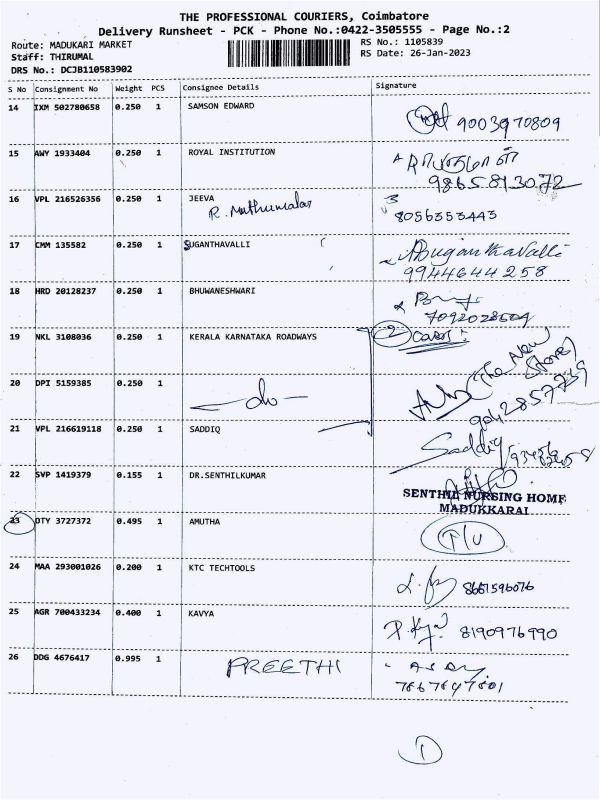 THE PROFESSIONAL COURIERS, Coimbatore
Delivery Runsheet - PCK - Phone No.:0422-3505555 - Page No.:2
Route: MADUKARI MARKET
Staff: THIRUMAL
DRS No.: DCJB110583902
RS No.: 1105839
RS Date: 26-Jan-2023
S No Consignment No Weight PCS Consignee Details Signature
14 IXM 502780658 0.250 1 SAMSON EDWARD
9003970809
15 AWY 1933404 0.250 1 ROYAL INSTITUTION
9865813072
16 VPL 216526356 0.250 1 JEEVA
R. Muthumalar
8056353443
17 CMM 135582 0.250 1 SUGANTHAVALLI
Suganthavalli
9944644258
18 HRD 20128237 0.250 1 BHUWANESHWARI
7092028504
19 NKL 3108036 0.250 1 KERALA KARNATAKA ROADWAYS
2
(The New
20 DPI 5159385 0.250 1 -do-
9042857739
21 VPL 216619118 0.250 1 SADDIQ
Saddiq
22 SVP 1419379 0.155 1 DR.SENTHILKUMAR
SENTHIL NURSING HOME
MADUKKARAI
23 OTY 3727372 0.495 1 AMUTHA
24 MAA 293001026 0.200 1 KTC TECHTOOLS
8667596076
25 AGR 700433234 0.400 1 KAVYA
8190976990
26 DDG 4676417 0.995 1 PREETHI
1